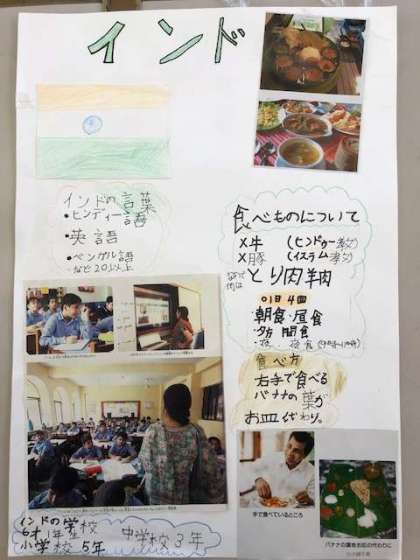 インド
インドの言葉
・ヒンディー語
・英語
・ベンガル語
など20以上
食べものについて
X牛 (ヒンドゥー教)
X豚 (イスラム教)
とり肉羊肉
1日4回
・朝食・昼食
夕方 間食
食べ方
右手で食べる
バナナの葉が
お皿代わり。
手で食べているところ
バナナの葉をお皿の代わりに
インドの学校
6才1年生
小学校5年
中学校3年